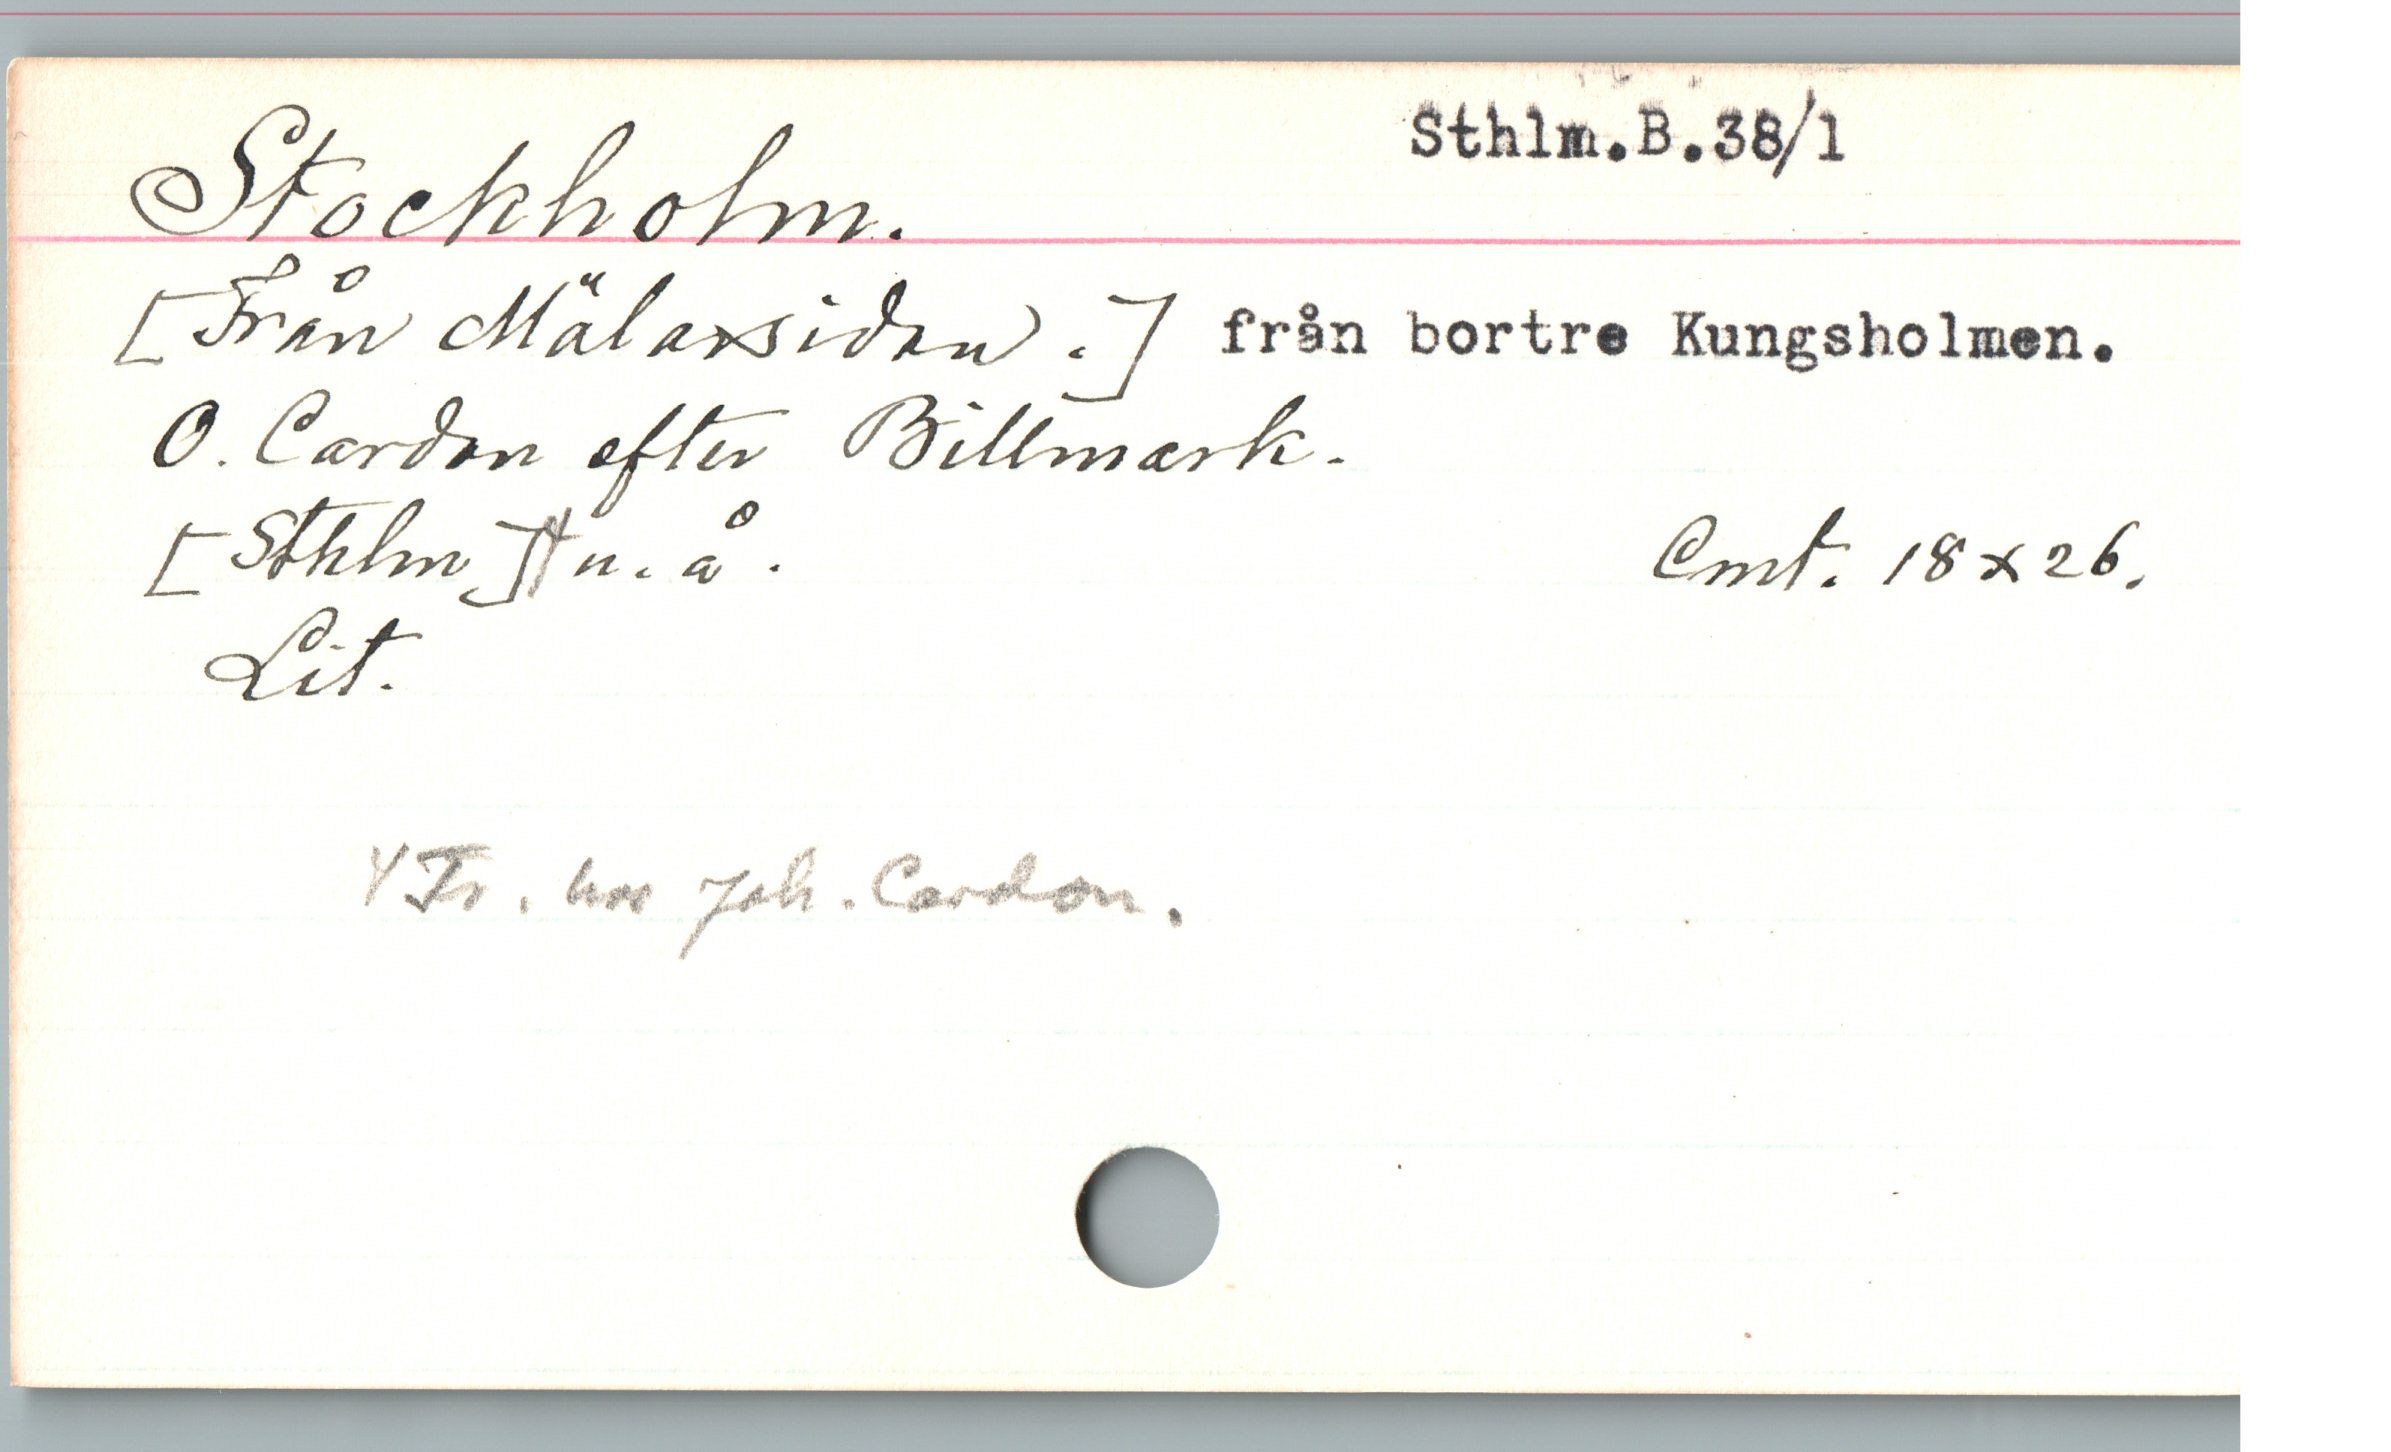 Sthlm.B.38/1
Stockholm.
[Från Mälarsidan.] från bortre Kungsholmen.
O. Cardon efter Billmark.
[Sthlm]+ u.å.
Cmt. 18x26.
Lit.
+ Tr. hos Joh. Cardon.